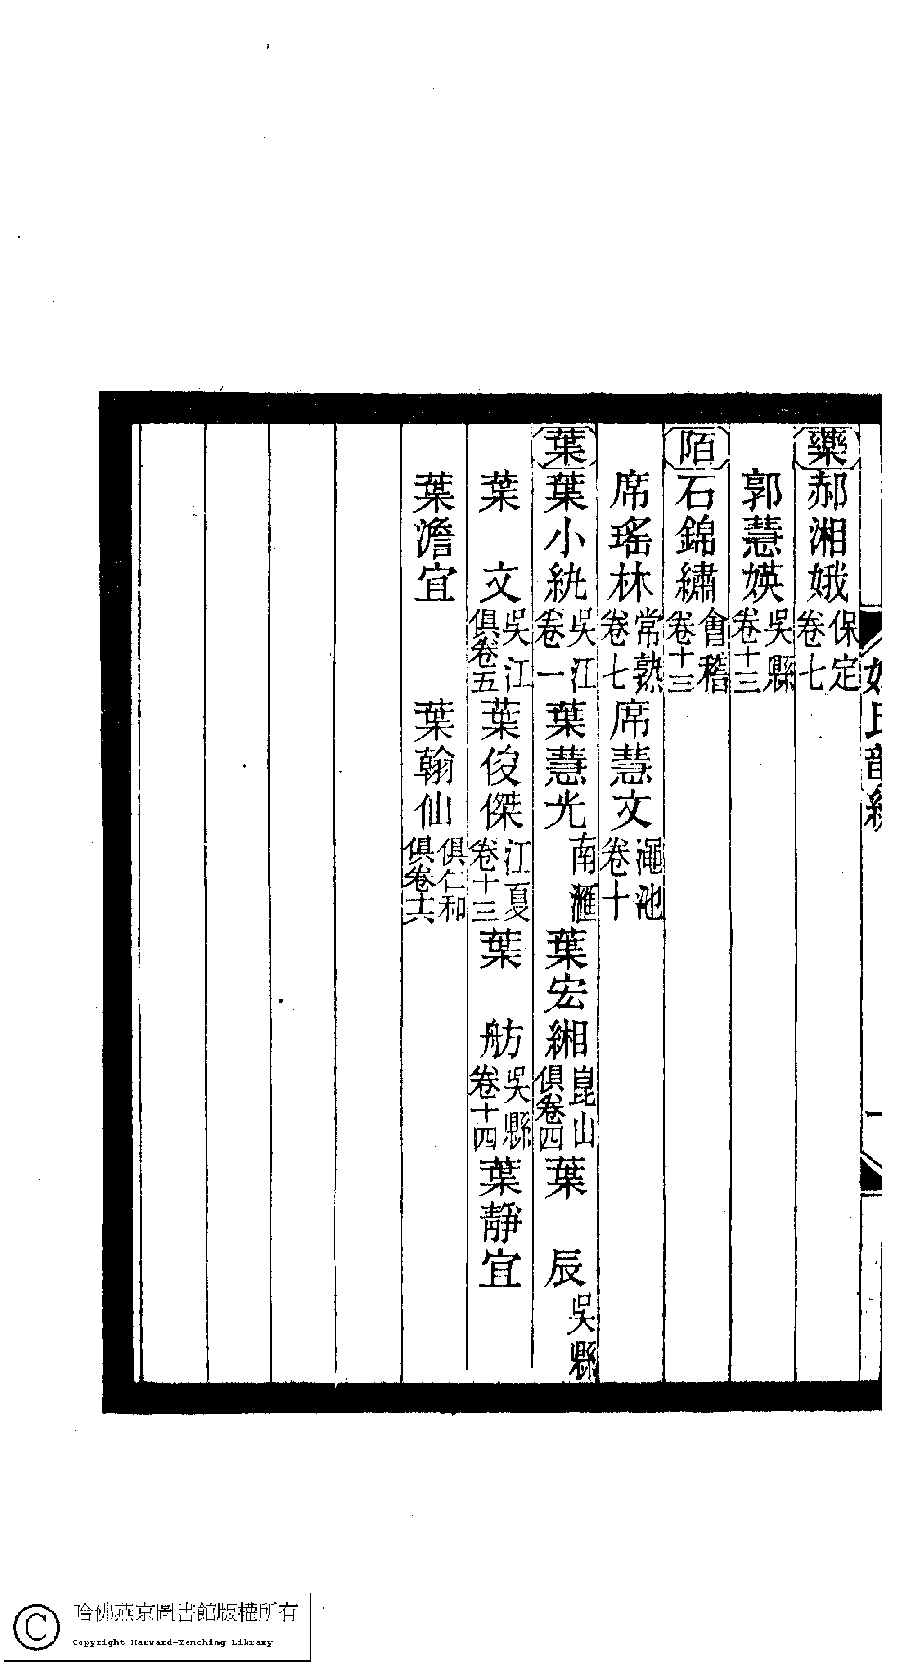 藥 郝湘娥 保定 卷七
郭慧媖 吳縣 卷十三
陌 石錦繡 會稽 卷十三
席瑤林 常熟 卷七 席慧文 澠池 卷十
葉 葉小紈 吳江 卷一 葉慧光 南滙 葉宏緗 崑山 俱卷四 葉辰 吳縣
葉文 吳江 俱卷五 葉俊傑 江夏 卷十三 葉舫 吳縣 卷十四 葉靜宜
葉澹宜 葉翰仙 俱仁和 俱卷十六
哈佛燕京圖書館版權所有
Copyright Harvard-Yenching Library